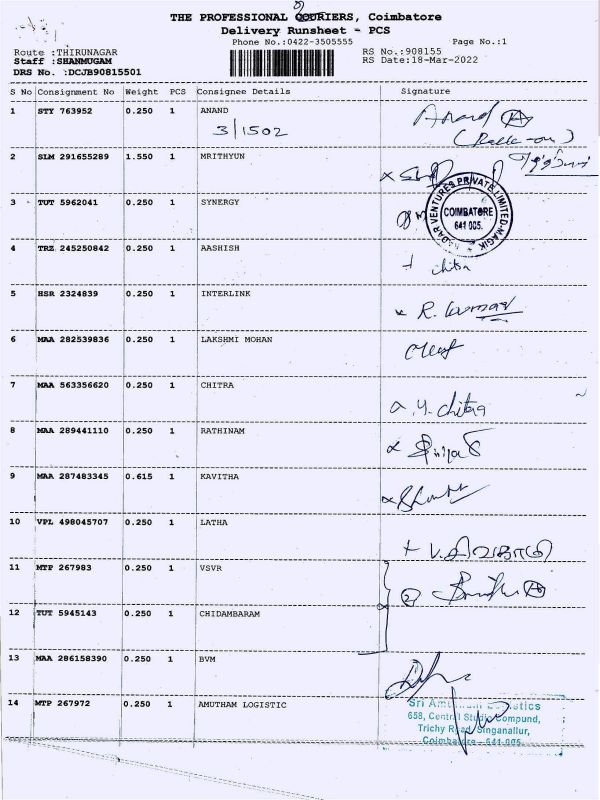 THE PROFESSIONAL COURIERS, Coimbatore
Delivery Runsheet - PCS
Phone No.:0422-3505555
Page No.:1
Route :THIRUNAGAR
RS No.:908155
Staff :SHANMUGAM
RS Date:18-Mar-2022
DRS No. :DCJB90815501
S No Consignment No Weight PCS Consignee Details Signature
1 STY 763952 0.250 1 ANAND Anand
3/1502
2 SLM 291655289 1.550 1 MRITHYUN
3 TUT 5962041 0.250 1 SYNERGY
NADAR VENTURES PRIVATE LIMITED-MAGIK
COIMBATORE
641 005.
4 TRZ 245250842 0.250 1 AASHISH
chitra
5 HSR 2324839 0.250 1 INTERLINK
R. Kumar
6 MAA 282539836 0.250 1 LAKSHMI MOHAN
7 MAA 563356620 0.250 1 CHITRA
y. chitra
8 MAA 289441110 0.250 1 RATHINAM
9 MAA 287483345 0.615 1 KAVITHA
10 VPL 498045707 0.250 1 LATHA
11 MTP 267983 0.250 1 VSVR
12 TUT 5945143 0.250 1 CHIDAMBARAM
13 MAA 286158390 0.250 1 BVM
14 MTP 267972 0.250 1 AMUTHAM LOGISTIC
Sri Amutham Logistics
658, Central Studio Compund,
Trichy Road, Singanallur,
Coimbatore - 641 005.